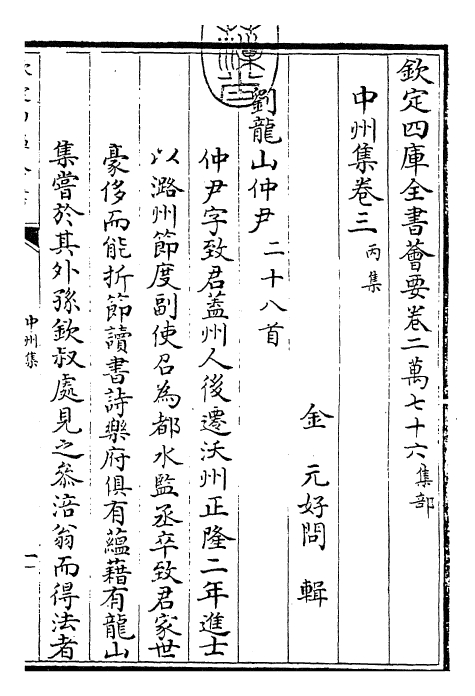 欽定四庫全書薈要卷二萬七十六集部
中州集卷三 丙集
金 元好問 輯
劉龍山仲尹 二十八首
仲尹字致君蓋州人後遷沃州正隆二年進士
以潞州節度副使召為都水監丞卒致君家世
豪侈而能折節讀書詩樂府俱有蘊藉有龍山
集嘗於其外孫欽叔處見之參涪翁而得法者
中州集
一